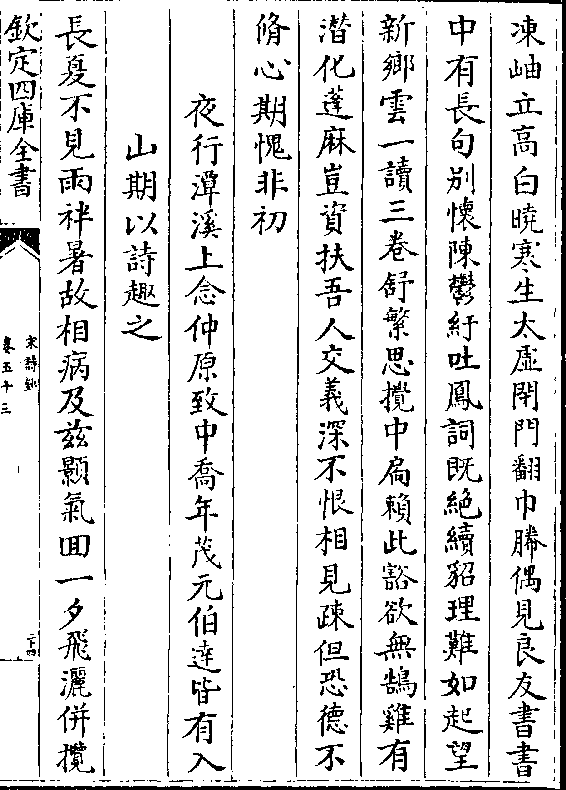 凍岫立高白曉寒生太虛閉門翻巾勝偶見良友書書
中有長句别懷陳鬱紆吐鳳詞既絶續貂理難如起望
新鄉雲一讀三卷舒繁思攪中扃賴此豁欲無鵠雞有
潜化蓬麻豈資扶吾人交義深不恨相見疎但恐德不
脩心期愧非初
夜行潭溪上念仲原致中喬年茂元伯達皆有入
山期以詩趣之
長夏不見雨袢暑故相病及兹顥氣囬一夕飛灑併攬
欽定四庫全書
宋詩鈔
卷五十三
二十四